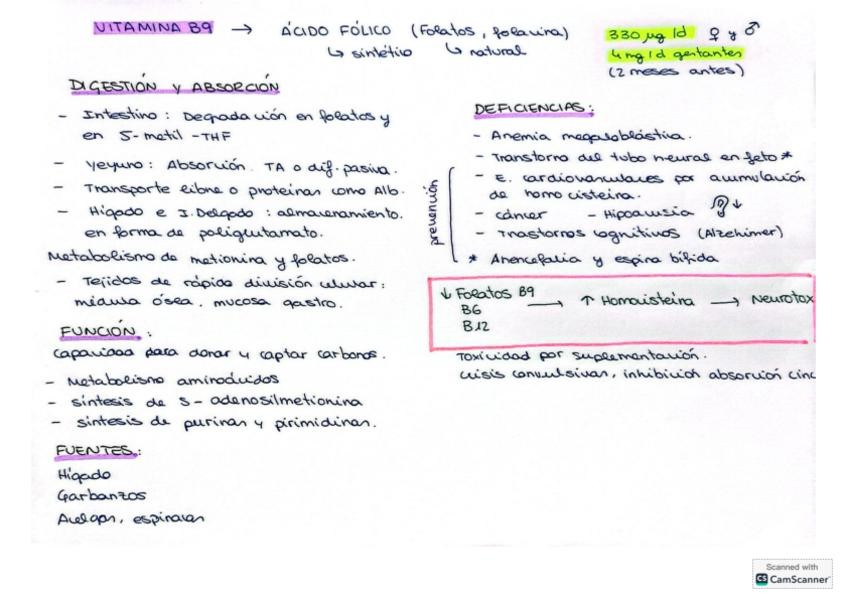 VITAMINA B9 → ÁCIDO FÓLICO (Folatos, folacina)
↳ sintético ↳ natural
330 µg/d ♀ y ♂
4 mg/d gestantes
(2 meses antes)
DIGESTIÓN y ABSORCIÓN
- Intestino: Degradación en folatos y
en 5-metil-THF
- Yeyuno: Absorción. TA o dif. pasiva.
- Transporte libre o proteínas como Alb.
- Hígado e I. Delgado: almacenamiento.
en forma de poliglutamato.
Metabolismo de metionina y folatos.
- Tejidos de rápida división celular:
médula ósea, mucosa gastro.
FUNCIÓN:
capacidad para donar y captar carbonos.
- Metabolismo aminoácidos
- síntesis de S-adenosilmetionina
- síntesis de purinas y pirimidinas.
FUENTES:
Hígado
Garbanzos
Acelgas, espinacas
DEFICIENCIAS:
- Anemia megaloblástica.
- Transtorno del tubo neural en feto *
prevención
- E. cardiovasculares por acumulación
de homocisteína.
- cáncer - Hipoacusia ↓
- Trastornos cognitivos (Alzehimer)
* Anencefalia y espina bífida
↓ Folatos B9 → ↑ Homocisteína → Neurotox
B6
B12
Toxicidad por suplementación.
crisis convulsivas, inhibición absorción cinc
Scanned with
CS CamScanner